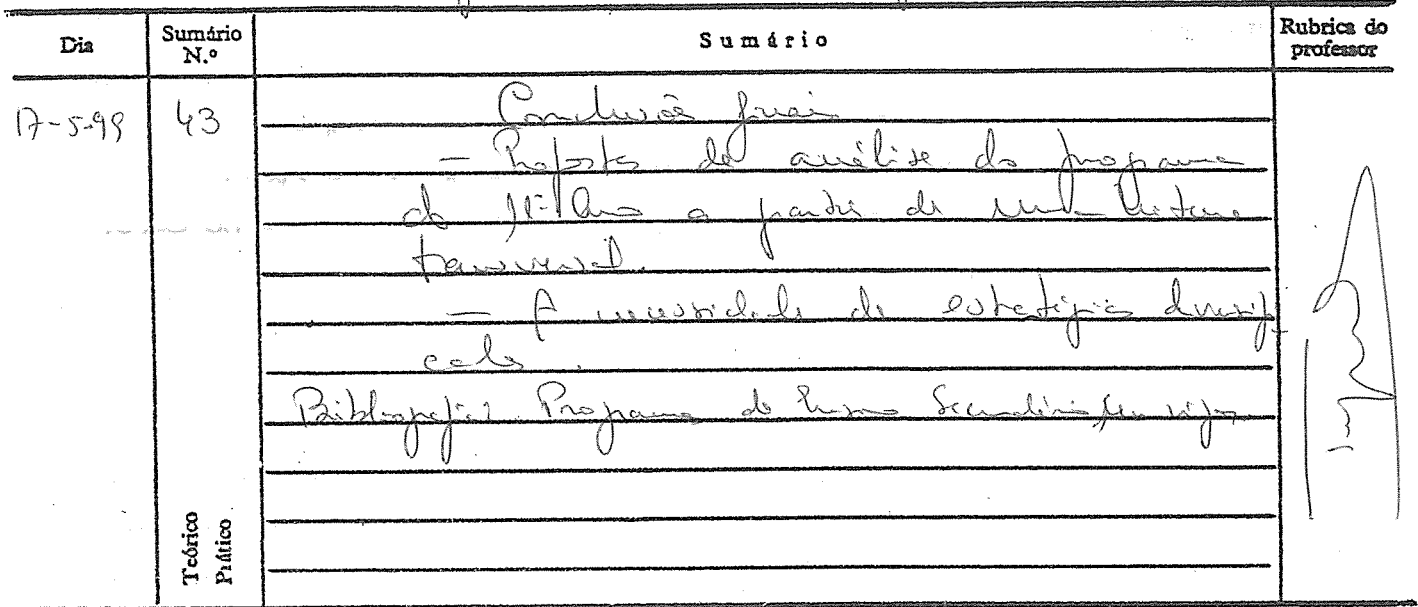 Dia Sumário N.º Sumário Rubrica do professor
17-5-99 43 Conclusões finais
– Proposta de análise do programa
do 11º Ano a partir de uma leitura
transversal.
– A necessidade de estratégias diversifi-
cadas.
Bibliografia: Programa do Ensino Secundário em vigor
Teórico
Prático